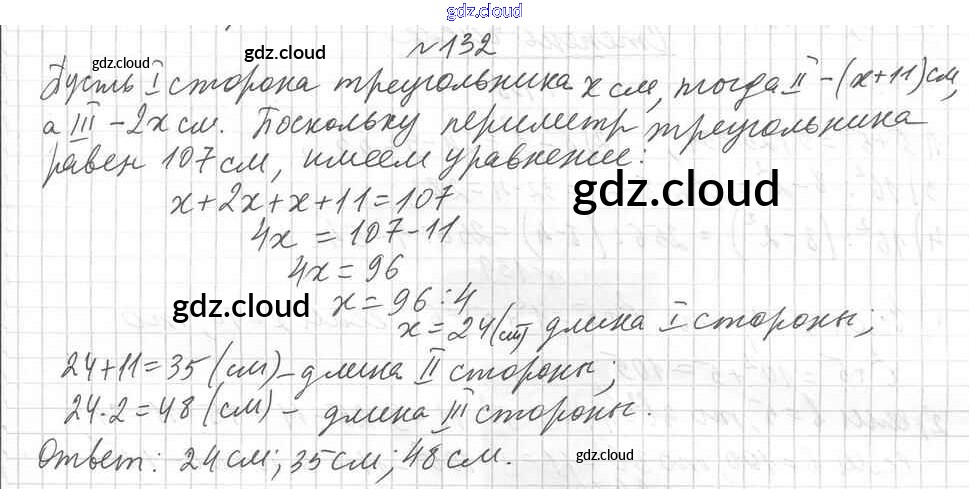 gdz.cloud
gdz.cloud
№132
gdz.cloud
Пусть I сторона треугольника x см, тогда II – (x+11) см,
а III – 2x см. Поскольку периметр треугольника
равен 107 см, имеем уравнение:
gdz.cloud
x+2x+x+11=107
4x = 107-11
4x = 96
gdz.cloud
x = 96:4
x = 24 (см) длина I стороны;
24+11=35 (см) – длина II стороны;
24·2=48 (см) – длина III стороны.
Ответ: 24 см; 35 см; 48 см.
gdz.cloud